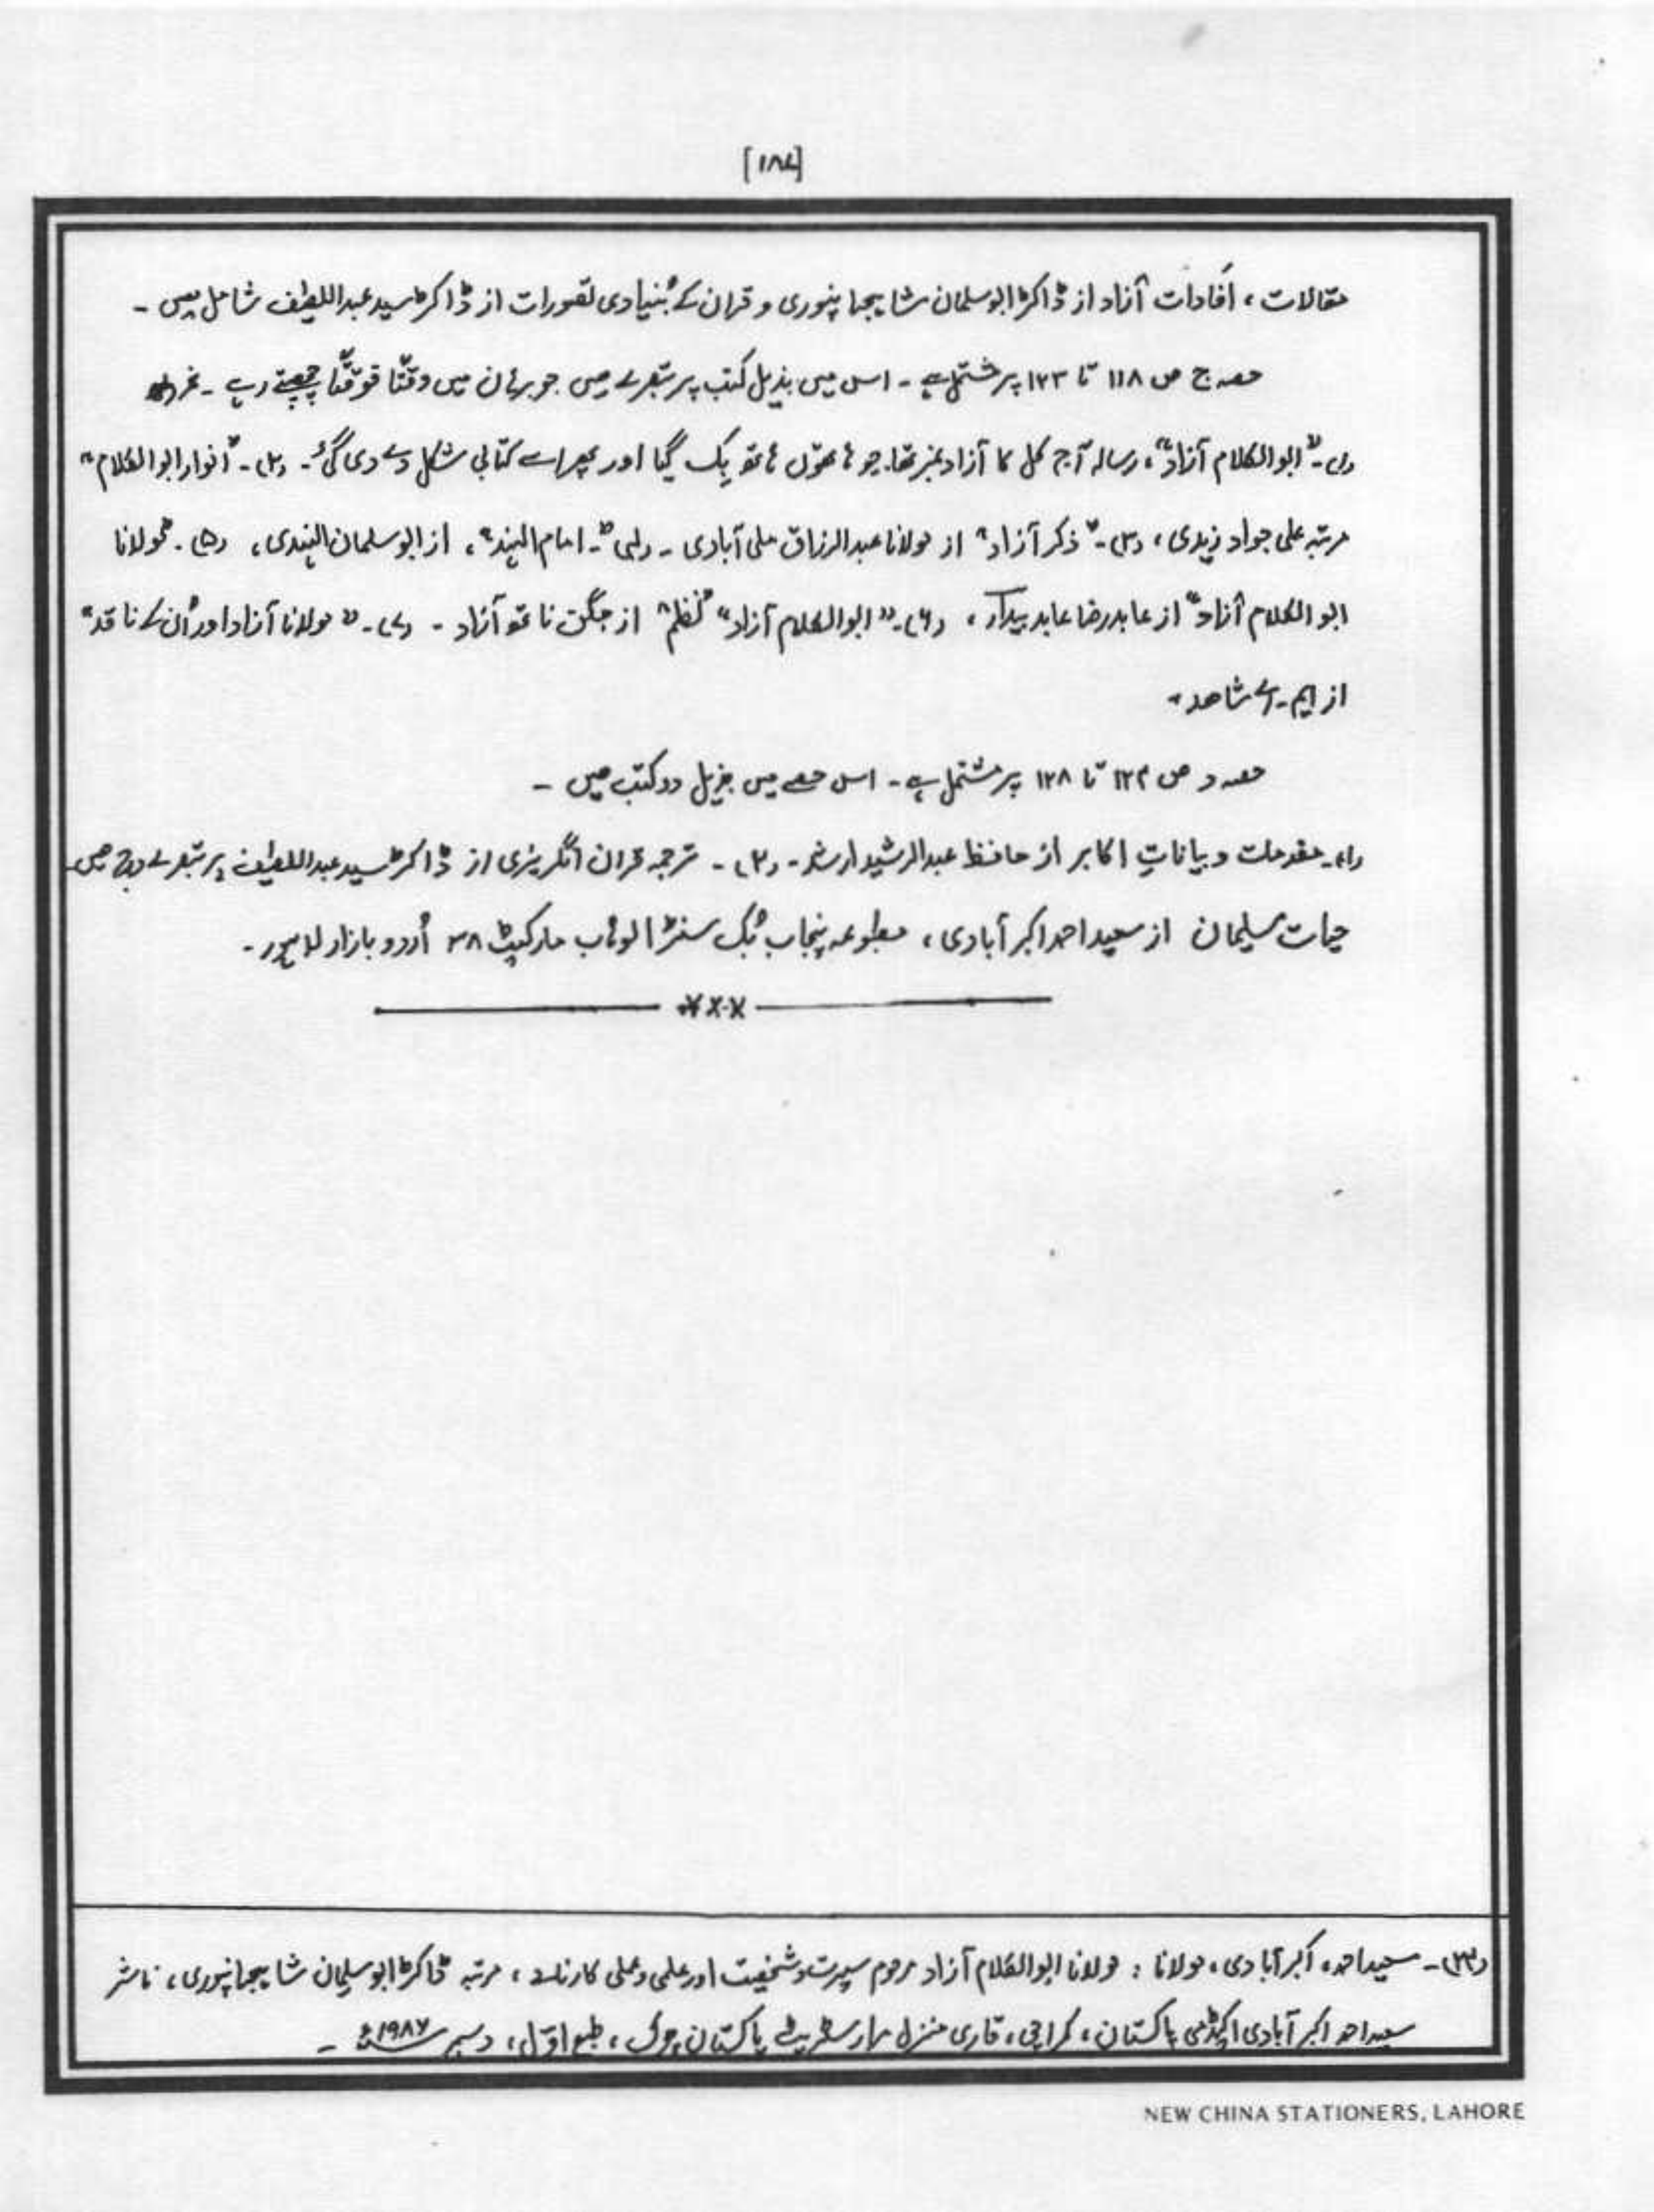 [۱۸۷]
مقالات، افادات آزاد از ڈاکٹر ابو سلمان شاہجہانپوری و قرآن کے بُنیادی تصورات از ڈاکٹر سید عبداللطیف شامل ہیں -
حصہ ج ص ۱۱۸ تا ۱۲۳ پر مشتمل ہے - اس میں بذیل کتب پر تبصرے ہیں جو برہان میں وقتًا فوقتًا چھپتے رہے -
(۱)- "ابو الکلام آزاد"، رسالہ آج کل کا آزاد نمبر تھا. جو ہاتھوں ہاتھ بِک گیا اور پھر اسے کتابی شکل دے دی گئی - (۲)- "انوار ابو الکلام"
مرتبہ علی جواد زیدی، (۳)- "ذکر آزاد" از مولانا عبد الرزاق ملی آبادی - (۴)- "امام الہند"، از ابو سلمان الہندی، (۵)- "مولانا
ابو الکلام آزاد" از عابد رضا عابد بیدار، (۶)- "ابو الکلام آزاد" "نظم" از جگن ناتھ آزاد - (۷)- "مولانا آزاد اور اُن کے ناقد"
از ایم - اے شاھد -
حصہ د ص ۱۲۴ تا ۱۲۸ پر مشتمل ہے - اس حصے میں بذیل دو کتب ھیں -
(۱)- مقدمات و بیاناتِ اکابر از حافظ عبد الرشید ارشد - (۲) - ترجمہ قران انگریزی از ڈاکٹر سید عبد اللطیف پر تبصرے درج ھیں -
حیات سلیمان از سعید احمد اکبر آبادی، مطبوعہ پنجاب بُک سنٹر الوہاب مارکیٹ ۳۸ اُردو بازار لاہور -
×××
(۳۳)- سعید احمد، اکبر آبادی، مولانا : مولانا ابو الکلام آزاد مرحوم سیرت و شخصیت اور علمی و عملی کارنامے، مرتبہ ڈاکٹر ابو سلیمان شاہجہانپوری، ناشر
سعید احمد اکبر آبادی اکیڈمی پاکستان، کراچی، قاری منزل سٹریٹ پاکستان چوک، طبع اوّل، دسمبر ۱۹۸۷ء -
NEW CHINA STATIONERS, LAHORE